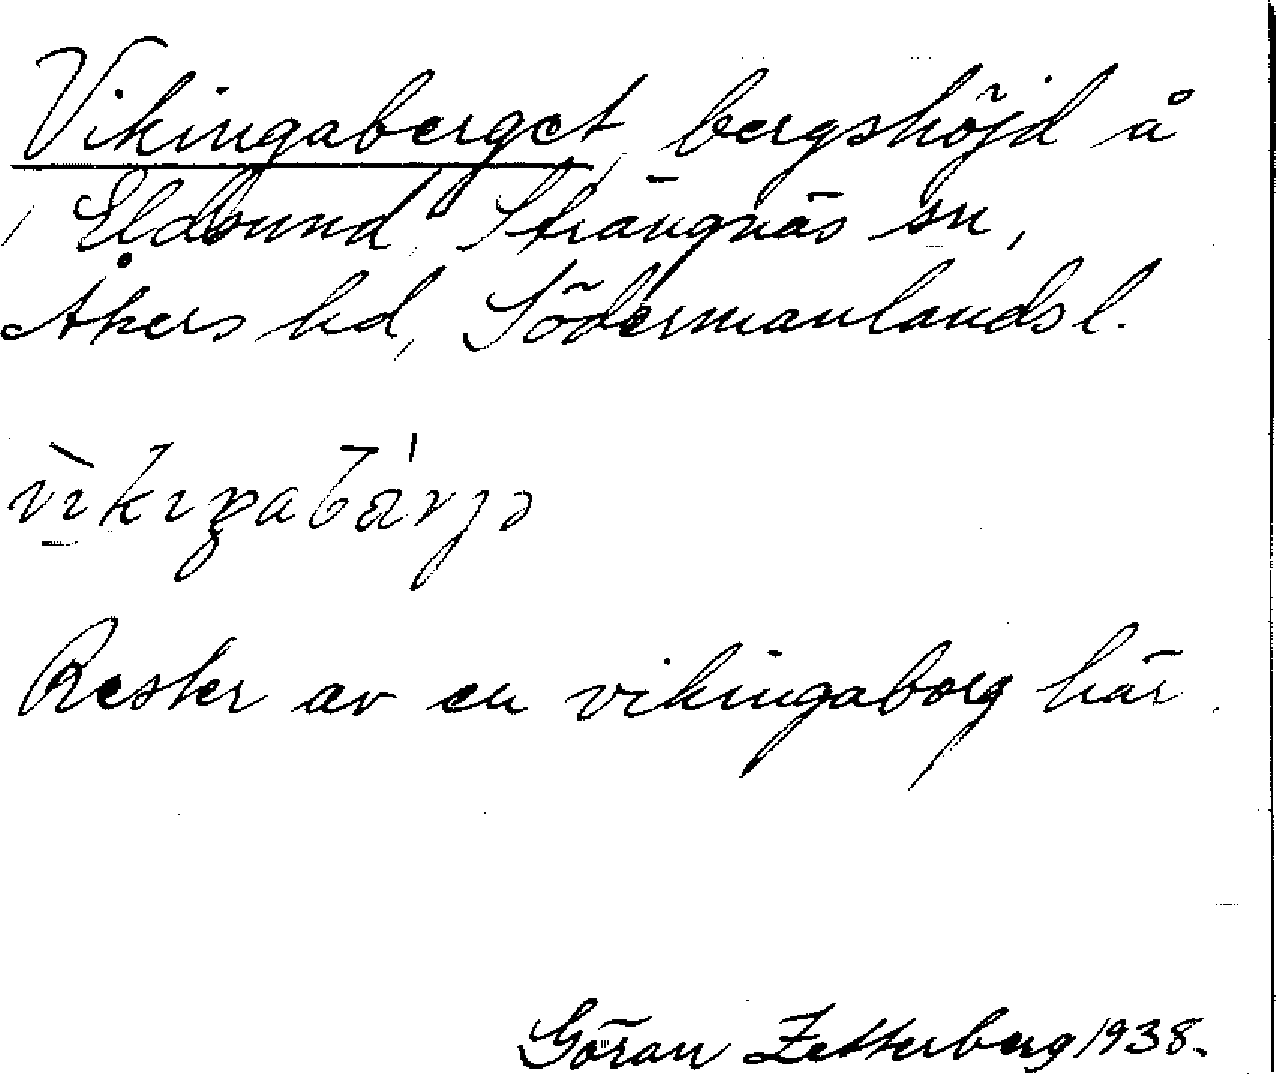 Vikingaberget, bergshöjd å
Eldsund, Strängnäs sn,
Åkers hd, Södermanlands l.
Rester av en vikingaborg här.
Göran Zetterberg 1938.